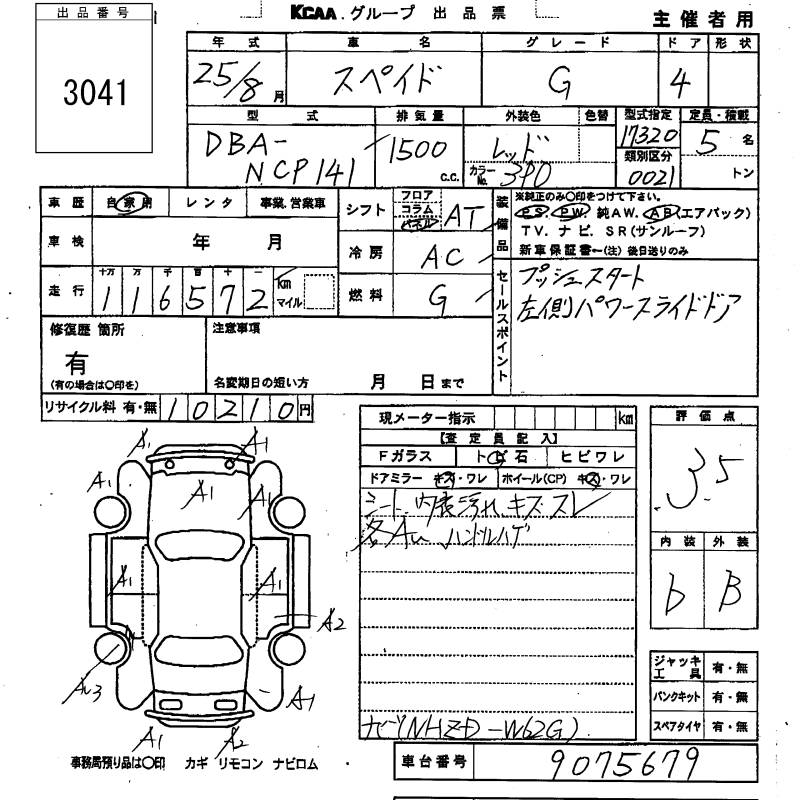 出品番号
3041
KCAA.グループ 出品票
主催者用
年式 車名 グレード ドア 形状
25/8月 スペイド G 4
型式 排気量 外装色 色替 型式指定 定員・積載
DBA-NCP141 1500 c.c. レッド 17320 5名
カラーNo. 3P0 類別区分 0021 トン
車歴 自家用 レンタ 事業.営業車
車検 年 月
走行 十万 万 千 百 十 一
116572 km マイル
シフト フロア コラム パネル AT
冷房 AC
燃料 G
装備品 ※純正のみ○印をつけて下さい。
PS. PW. 純AW. AB(エアバック)
TV. ナビ. SR(サンルーフ)
新車保証書←(注) 後日送りのみ
セールスポイント
プッシュスタート
左側パワースライドドア
修復歴 箇所
有
(有の場合は○印を)
注意事項
名変期日の短い方 月 日まで
リサイクル料 有・無 10210円
現メーター指示 km
【査定員記入】
Fガラス トビ石 ヒビワレ
ドアミラー キズ・ワレ ホイール(CP) キズ・ワレ
シート、内張汚れ キズ スレ
各Au ハンドルハゲ
ナビ(NHZD-W62G)
評価点
3.5
内装 外装
b B
ジャッキ工具 有・無
パンクキット 有・無
スペアタイヤ 有・無
A1 A1
A1 A1 A1
A1 A1
A2
A1
A1 A2
事務局預り品は○印 カギ リモコン ナビロム
車台番号 9075679